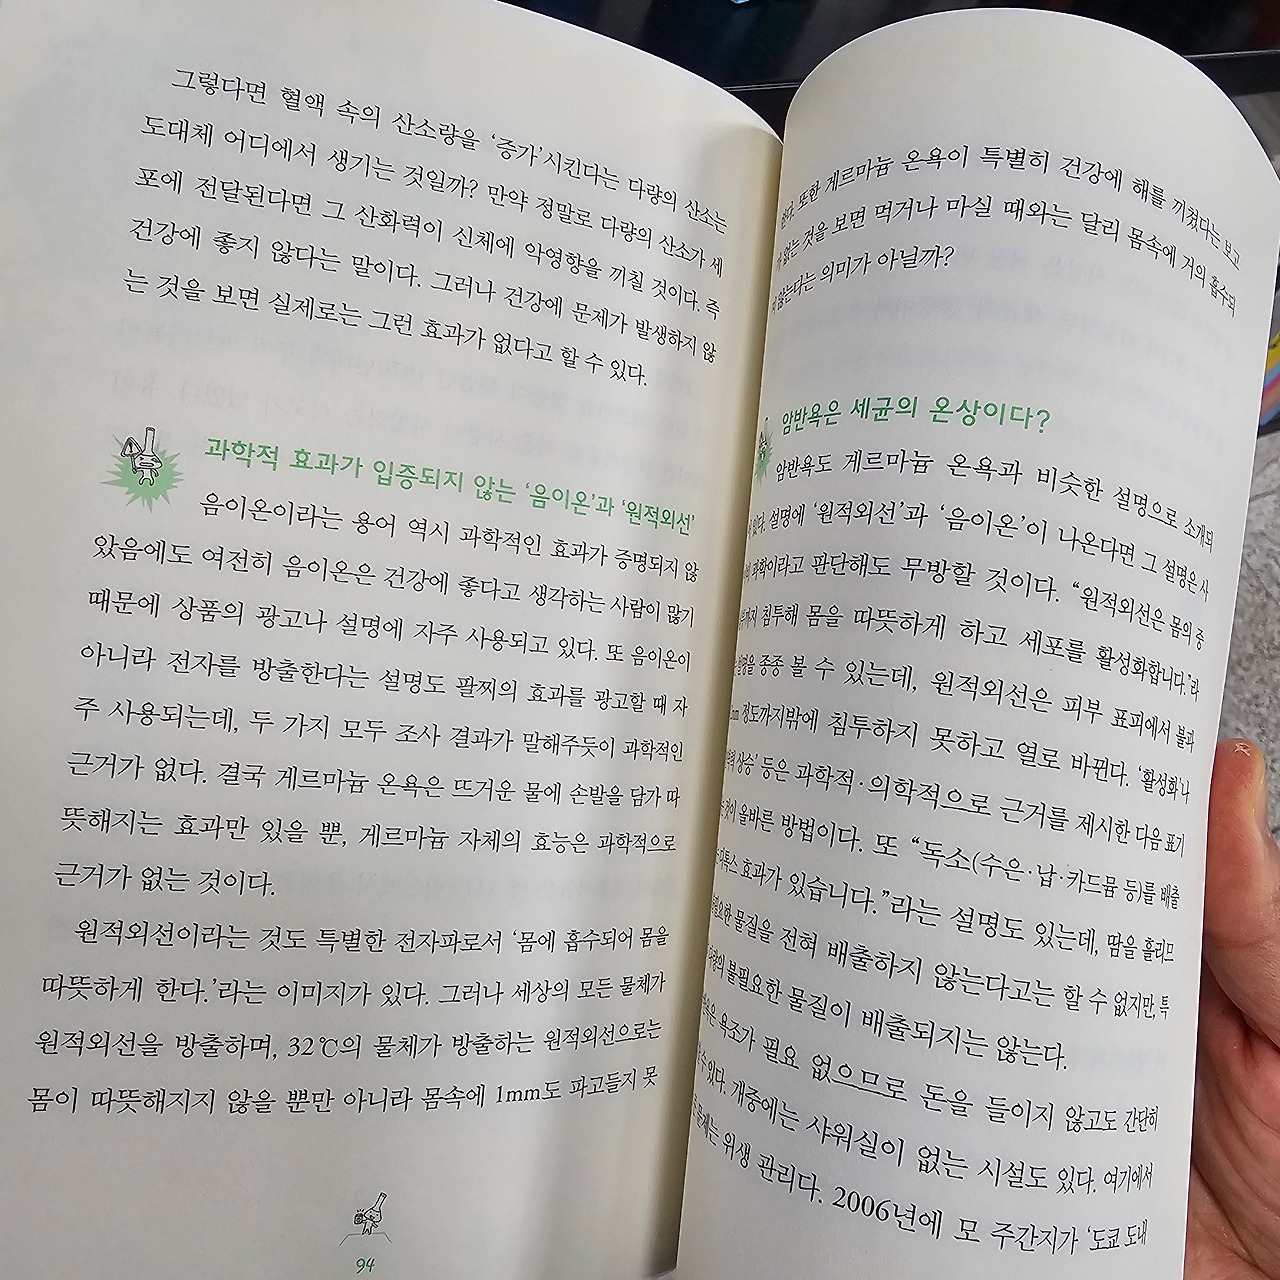 그렇다면 혈액 속의 산소량을 ‘증가’시킨다는 다량의 산소는
도대체 어디에서 생기는 것일까? 만약 정말로 다량의 산소가 세
포에 전달된다면 그 산화력이 신체에 악영향을 끼칠 것이다. 즉
건강에 좋지 않다는 말이다. 그러나 건강에 문제가 발생하지 않
는 것을 보면 실제로는 그런 효과가 없다고 할 수 있다.
과학적 효과가 입증되지 않는 ‘음이온’과 ‘원적외선’
음이온이라는 용어 역시 과학적인 효과가 증명되지 않
았음에도 여전히 음이온은 건강에 좋다고 생각하는 사람이 많기
때문에 상품의 광고나 설명에 자주 사용되고 있다. 또 음이온이
아니라 전자를 방출한다는 설명도 팔찌의 효과를 광고할 때 자
주 사용되는데, 두 가지 모두 조사 결과가 말해주듯이 과학적인
근거가 없다. 결국 게르마늄 온욕은 뜨거운 물에 손발을 담가 따
뜻해지는 효과만 있을 뿐, 게르마늄 자체의 효능은 과학적으로
근거가 없는 것이다.
원적외선이라는 것도 특별한 전자파로서 ‘몸에 흡수되어 몸을
따뜻하게 한다.’라는 이미지가 있다. 그러나 세상의 모든 물체가
원적외선을 방출하며, 32℃의 물체가 방출하는 원적외선으로는
몸이 따뜻해지지 않을 뿐만 아니라 몸속에 1mm도 파고들지 못
94
또한 게르마늄 온욕이 특별히 건강에 해를 끼쳤다는 보고
없는 것을 보면 먹거나 마실 때와는 달리 몸속에 거의 흡수되
않는다는 의미가 아닐까?
암반욕은 세균의 온상이다?
암반욕도 게르마늄 온욕과 비슷한 설명으로 소개되
있다. 설명에 ‘원적외선’과 ‘음이온’이 나온다면 그 설명은 사
과학이라고 판단해도 무방할 것이다. “원적외선은 몸의 중
침투해 몸을 따뜻하게 하고 세포를 활성화합니다.”라
설명을 종종 볼 수 있는데, 원적외선은 피부 표피에서 불과
정도까지밖에 침투하지 못하고 열로 바뀐다. ‘활성화’나
상승’ 등은 과학적·의학적으로 근거를 제시한 다음 표기
것이 올바른 방법이다. 또 “독소(수은·납·카드뮴 등)를 배출
효과가 있습니다.”라는 설명도 있는데, 땀을 흘리므
물질을 전혀 배출하지 않는다고는 할 수 없지만, 특
불필요한 물질이 배출되지는 않는다.
욕조가 필요 없으므로 돈을 들이지 않고도 간단히
수 있다. 개중에는 샤워실이 없는 시설도 있다. 여기에서
위생 관리다. 2006년에 모 주간지가 ‘도쿄 도내